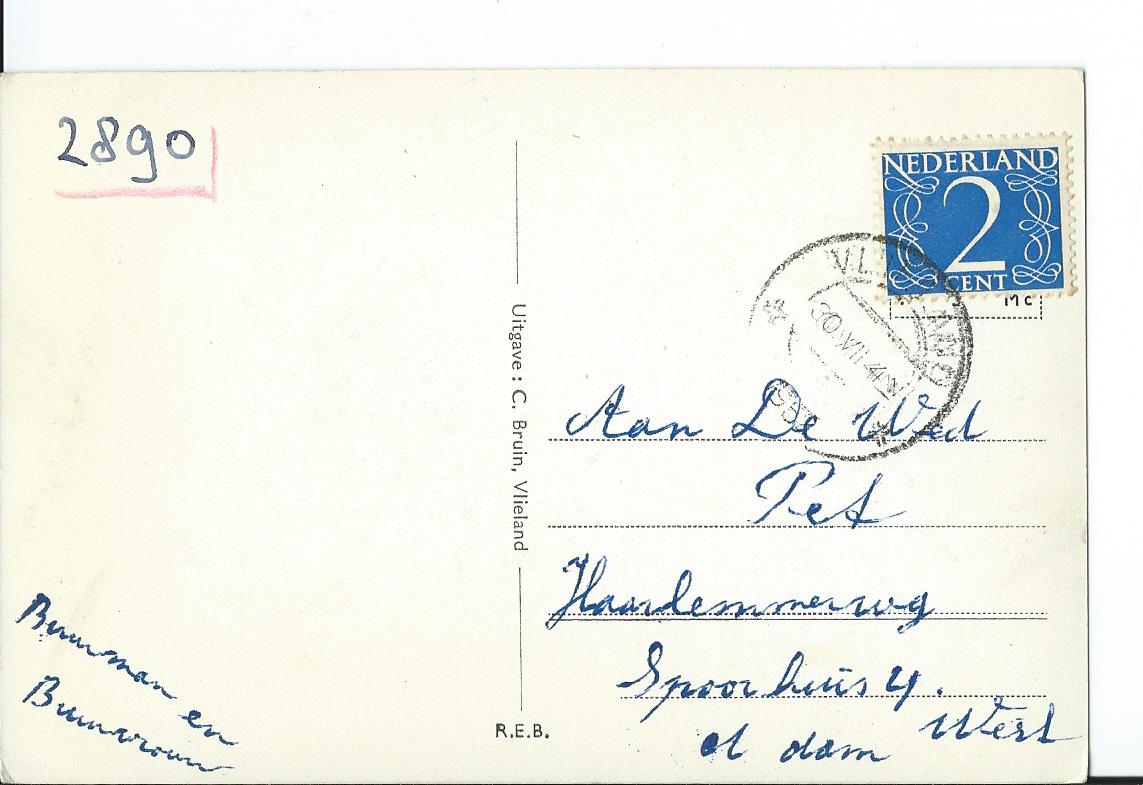 2890
NEDERLAND
2
CENT
VLIELAND
30 VII 4
195
Uitgave: C. Bruin, Vlieland
Aan De Wed
Pet
Haarlemmerweg
Spoorhuis 4.
A dam West
Buurman en
Buurvrouw
R.E.B.